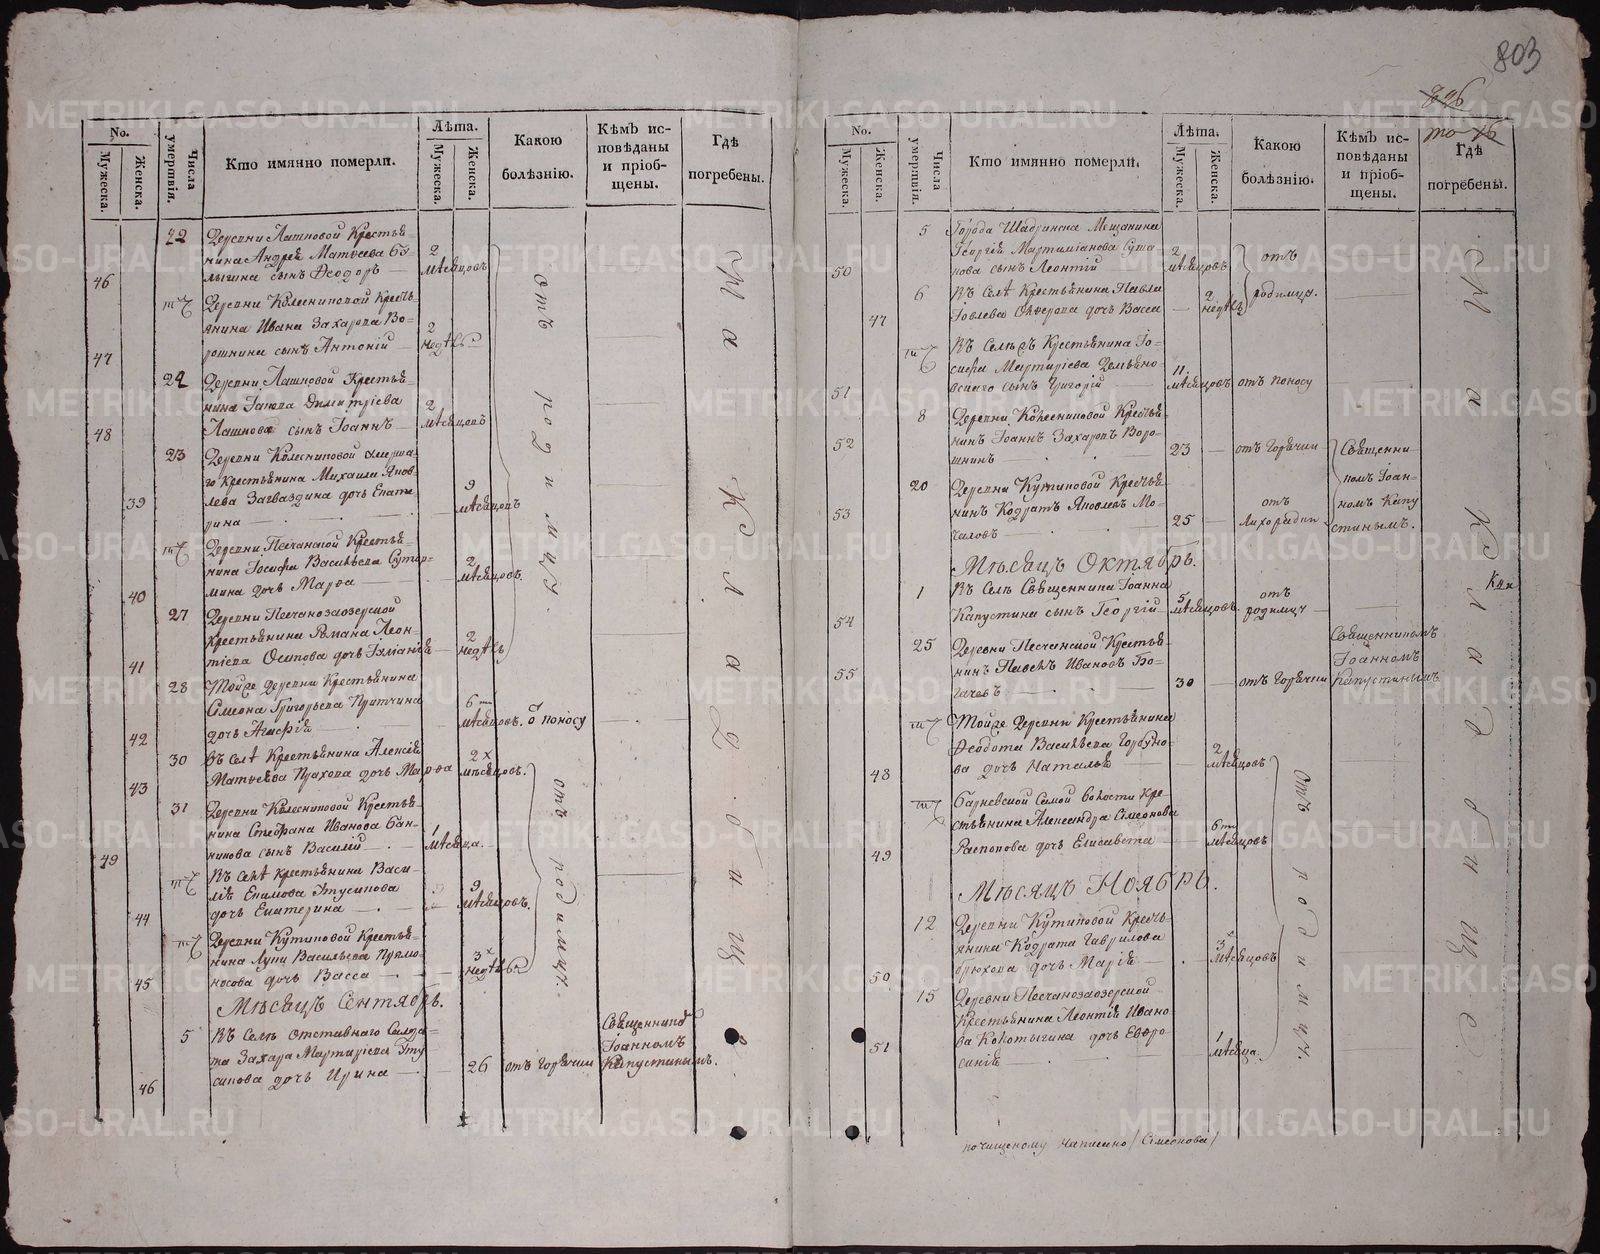 803
No.
Мужеска.
Женска.
Числа умертвія.
Кто имянно померли.
Лѣта.
Мужеска.
Женска.
Какою болѣзнію.
Кѣмъ исповѣданы и пріобщены.
Гдѣ погребены.
46
22
Деревни Лашновой Крестья-
нина Андрея Матвеева
сынъ Ѳеодоръ
2 мѣсяцовъ
отъ родимцу.
на Кладбище
47
Деревни Колесниковой Крестъ-
янина Ивана Захарова Во-
рошнина сынъ Антоній
2 недѣль
48
24
Деревни Лашновой Крестья-
нина Іакова Димитріева
Лашнова сынъ Іоаннъ
2 мѣсяцовъ
39
23
Деревни Колесниковой умерша-
го крестьянина Михаила Яков-
лева Загваздина дочь Екате-
рина
9 мѣсяцовъ
40
Деревни Песчанской Крестья-
нина Іосифа Васильева Сутор-
мина дочь Марѳа
2 мѣсяцовъ.
41
27
Деревни Песчаноозерской
крестьянина Романа Леон-
тіева Осипова дочь
2 недѣль
42
28
Тойже Деревни Крестьянина
Сімеона Григорьева Притчина
дочь Агафія
6 мѣсяцовъ.
поносу
43
30
Въ селѣ Крестьянина Алексія
Матвеева Пяхова дочь Марѳа
2х мѣсяцовъ.
отъ родимцу.
49
31
Деревни Колесниковой Крестья-
нина Стефана Иванова Бан-
никова сынъ Василій
1 мѣсяца.
44
Въ Селѣ крестьянина Васи-
лія Екимова Утусикова
дочь Екатерина
9 мѣсяцовъ.
45
Деревни Кутиковой Крестья-
нина Лупи Васильева Прямо-
носова дочь Васса
3х недѣль
Мѣсяцъ Сентябрь.
46
5
Въ Селѣ отставнаго Салда-
та Захара Мартиріева Уту-
сикова дочь Ирина
26
отъ Горячки
Священникомъ
Іоанномъ
Капустинымъ.
No.
Мужеска.
Женска.
Числа умертвія.
Кто имянно померли.
Лѣта.
Мужеска.
Женска.
Какою болѣзнію.
Кѣмъ исповѣданы и пріобщены.
Гдѣ погребены.
50
5
Города Шадринска Мещанина
Георгія Мартиміанова Сута-
кова сынъ Леонтій
2 мѣсяцовъ
отъ родимца.
на Кладбище
47
6
Въ Селѣ Крестьянина Павла
Іовлева дочь Васса
2 недѣль
51
Въ Селѣ Крестьянина Іо-
сифа Мартиріева Демьяно-
вскаго сынъ Григорій
11 мѣсяцовъ
отъ поносу
52
8
Деревни Колесниковой Крестья-
нинъ Іоаннъ Захаровъ Воро-
шнинъ
23
отъ Горячки
Священни-
комъ Іоан-
номъ Капу-
стинымъ.
53
20
Деревни Кутиковой Крестья-
нинъ Кодратъ Яковлевъ Мо-
чаловъ
25
отъ Лихорадки
Мѣсяцъ Октябрь.
54
1
Въ Селѣ Священника Іоанна
Капустина сынъ Георгій
5 мѣсяцовъ.
отъ родимцу
55
25
Деревни Песчанской Крестья-
нинъ Павелъ Ивановъ Бо-
гачевъ
30
отъ Горячки
Священникомъ
Іоанномъ
Капустинымъ
48
Тойже Деревни Крестьянина
Ѳеодота Васильева Горбуно-
ва дочь Наталья
2 мѣсяцовъ
отъ родимцу.
49
Барневской Самой волости Кре-
стьянина Александра Сімеонова
Распопова дочь Елисавета
6 мѣсяцовъ
Мѣсяцъ Ноябрь.
50
12
Деревни Кутиковой Кресть-
янина Кодрата Гаврилова
Брюхова дочь Марія
3х мѣсяцовъ
51
15
Деревни Песчаноозерской
Крестьянина Леонтія Ивано-
ва Колотыгина дочь Евфро-
синія
1 мѣсяца.
почищеному написано (Сімеонова)
METRIKI.GASO-URAL.RU